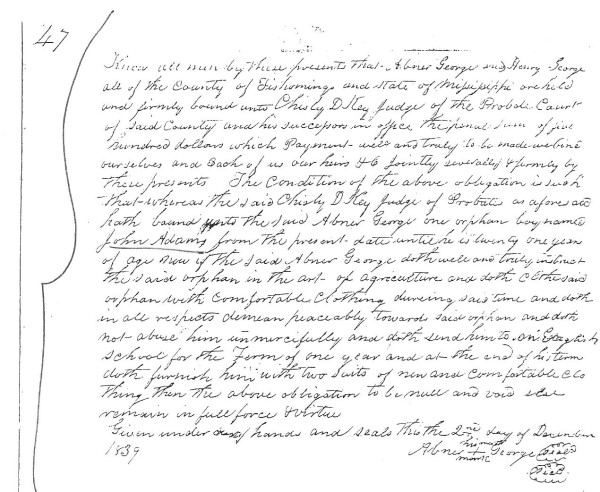 47
Know all men by these presents that Abner George and Henry George
all of the County of Tishomingo and state of Mississippi are held
and firmly bound unto Chisly D Key Judge of the Probate Court
of said County and his successors in office the penal sum of five
hundred dollars which Payment well and truly to be made we bind
ourselves and Each of us our heirs &c Jointly severally & firmly by
these presents The Condition of the above obligation is such
that whereas the said Chisly D Key Judge of Probate as afore said
hath bound unto the said Abner George one orphan boy named
John Adams from the present date until he is twenty one years
of age now if the said Abner George doth well and truly instruct
the said orphan in the art of agriculture and doth Clothe said
orphan with Comfortable Clothing dureing said time and doth
in all respects demean peaceably towards said orphan and doth
not abuse him unmercifully and doth send him to an English
school for the Term of one year and at the end of his term
doth furnish him with two suits of new and Comfortable Clo
thing then the above obligation to be null and void else
remain in full force & virtue
Given under our hands and seals this the 2nd day of December
1839
his
Abner + George Seal
mark
Seal